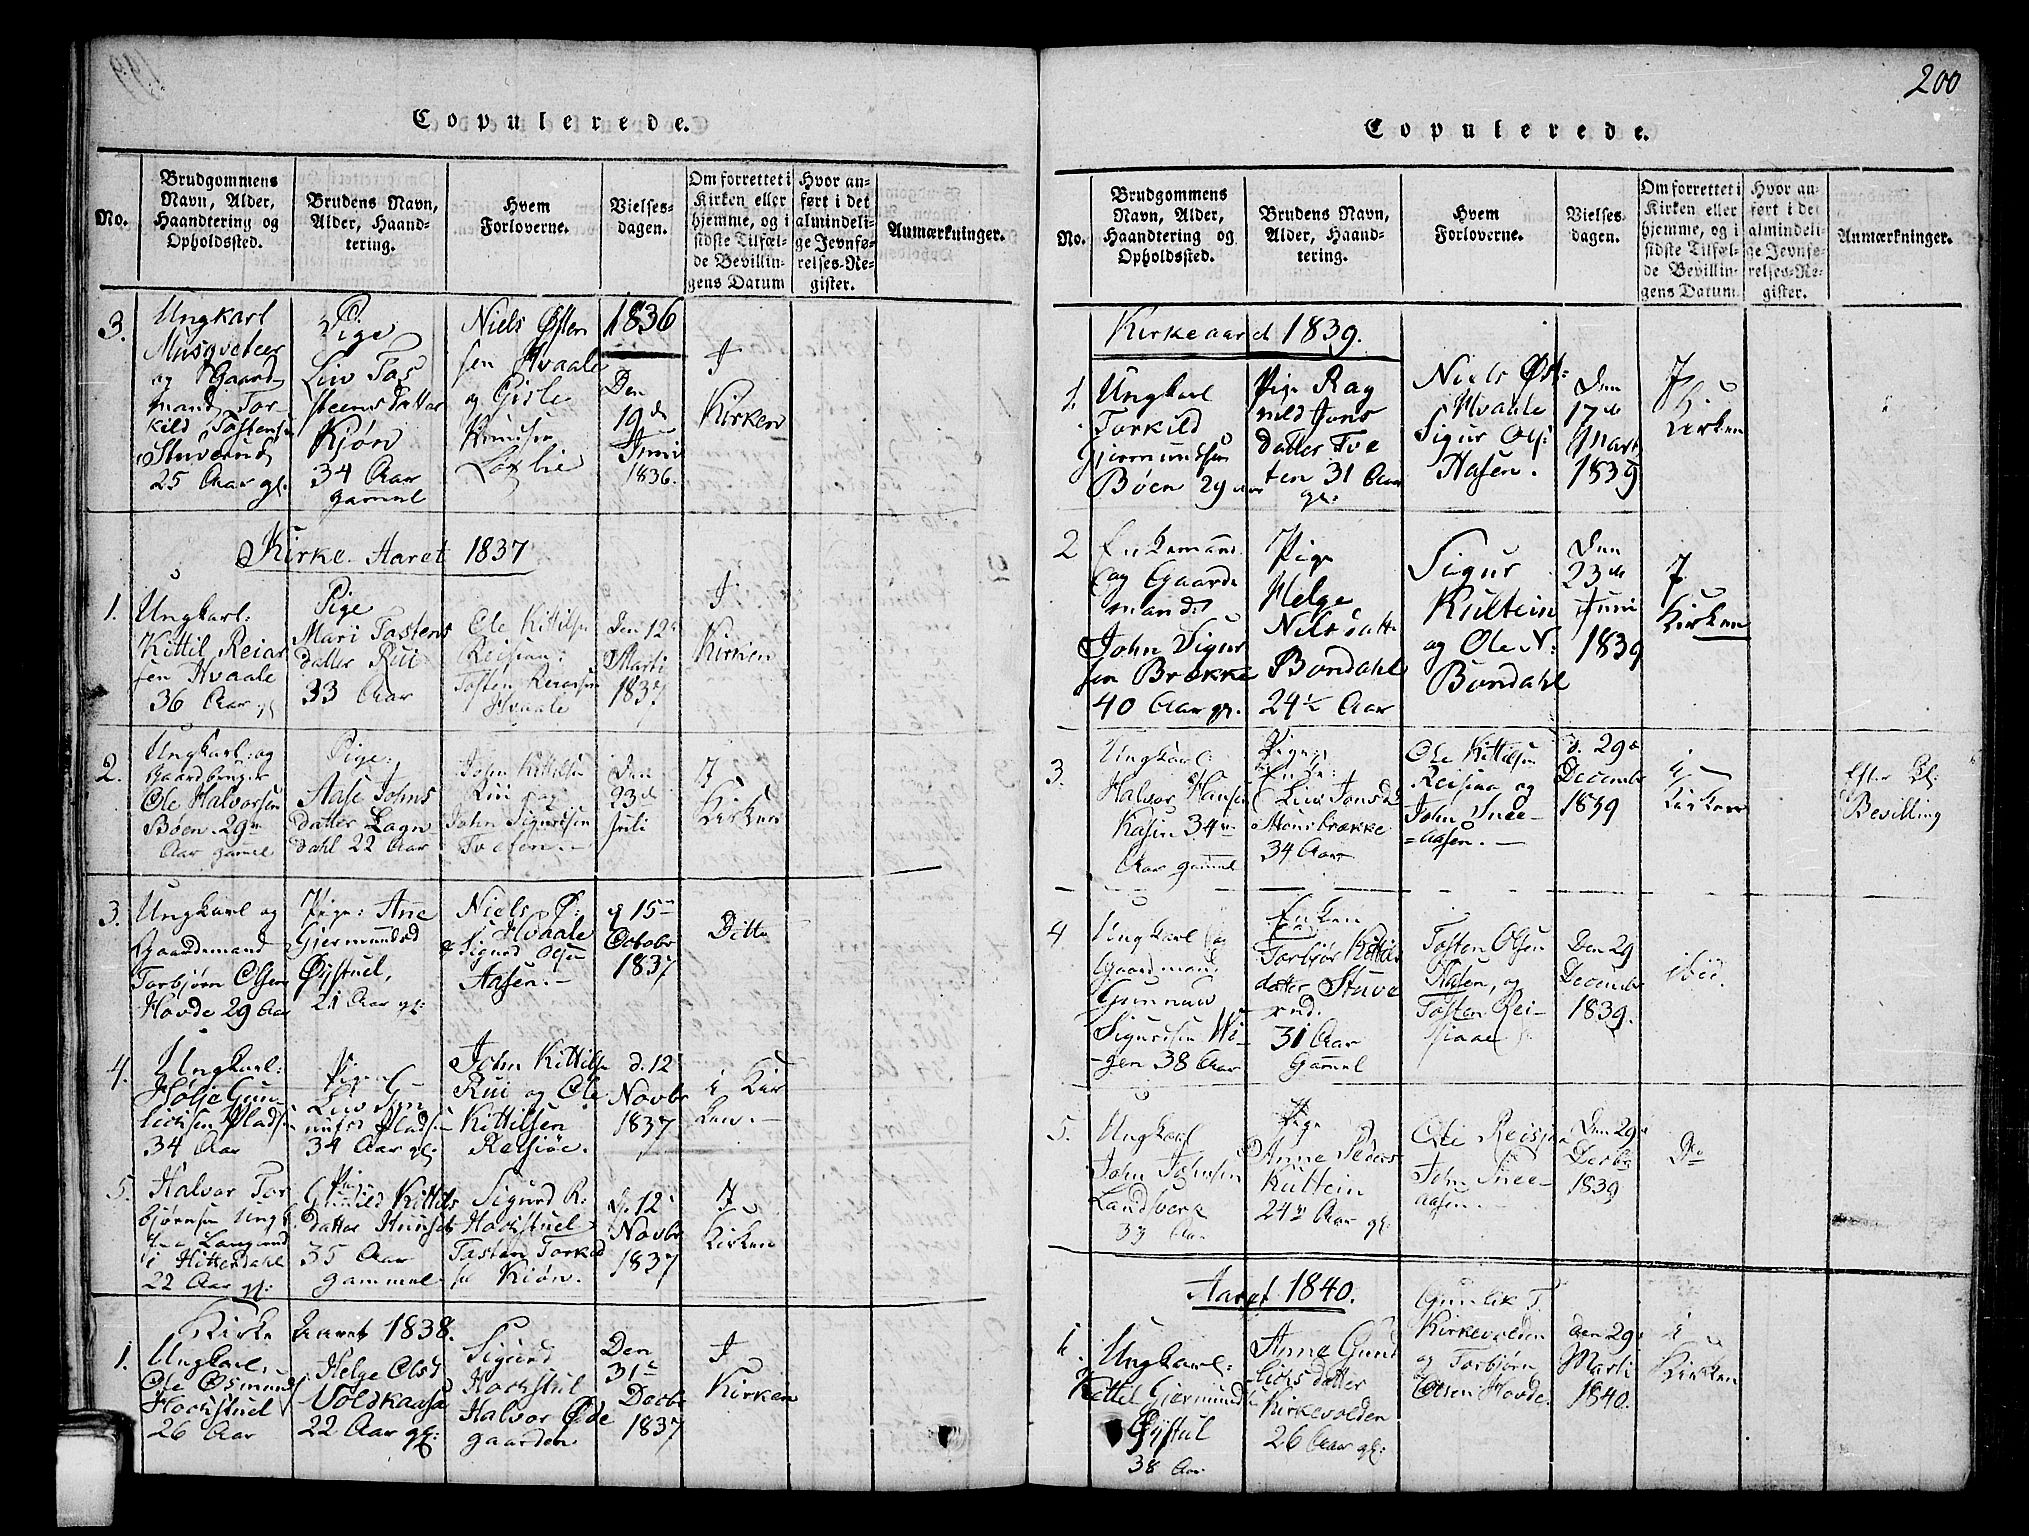 Copulerede.
No.
Brudgommens
Navn, Alder,
Haandtering og
Opholdssted.
Brudens Navn,
Alder, Haand-
tering.
Hvem
Forloverne.
Vielses-
dagen.
Om forrettet i
Kirken eller
hjemme, og i
sidste Tilfæl-
de Bevillin-
gens Datum
Hvor an-
ført i det
almindeli-
ge Jevnfø-
relses-Re-
gister.
Anmærkninger.
3.
Ungkarl
Musqveteer
og Gaard
mand Tor
kild Tostensen
Stuverud
25 Aar gl.
Pige
Liv Tos
steens datter
Kjøn
34 Aar
gammel
Niels Østen
sen Hvaale
og Gisle
Knudsen
Løslie
1836
Den
19de
Juni
1836.
I
Kirken
Kirke Aaret 1837
1.
Ungkarl:
Kittil Reiar
sen Hvaale
36 Aar gl
Pige
Mari Tostens
datter Rui
33 Aar
Ole Kittilsen
Reisiaa:
Tosten Reiarsen
Hvaale
Den 12te
Marti
1837
I
Kirken
2.
Ungkarl: og
Gaardbruger
Ole Halvorsen
Bøen 29
Aar gammel
Pige:
Aase Johns
datter Logn
dahl 22 Aar
John Kittilsen
Rui og
John Sigurdsen
Tveten.
Den
23de
Juli
I
Kirken
3.
Ungkarl og
Gaardemand
Torbjørn Olsen
Hovde 29 Aar
Pige: Ane
Gjermundsd
Øystuel,
21 Aar gl:
Niels Ø:
Hvaale
& Sigurd Olsen
Aasen.
d 15
Octobr
1837
Ditto
4.
Ungkarl:
Høljе Gun
lichsen Pladsen
34 Aar
Pige
Liv Gun
nulfsd Pladsen
34 Aar gl:
John Kittilsen
Rui og Ole
Kittilsen
Reisiøe.
d. 12
Novbr
1837
i Kir
ken.
5.
Halvor Tor
bjørnsen Ungk.
fra Langerud
i Hitterdahl
22 Aar gl:
Pige
Gunnild Kittils
datter Hunset
35 Aar
gammel
Sigurd R:
Hockstuel
Tosten Torkild
sen Kiøn.
d. 12
Novbr
1837
I
Kirken
Kirke Aaret 1838.
1.
Ungkarl.
Ole Osmunds
Hockstuel
26 Aar
Helge Olsd
Voldkaasa
22 Aar gl:
Sigurd
Hockstul
Halvor Øde
gaarden
Den
31te
Decbr
1837
I
Kirken
200
Copulerede.
No.
Brudgommens
Navn, Alder,
Haandtering og
Opholdssted.
Brudens Navn,
Alder, Haand-
tering.
Hvem
Forloverne.
Vielses-
dagen.
Om forrettet i
Kirken eller
hjemme, og i
sidste Tilfæl-
de Bevillin-
gens Datum.
Hvor an-
ført i det
almindeli-
ge Jevnfø-
relses-Re-
gister.
Anmærkninger.
Kirkeaard 1839.
1.
Ungkarl
Torkild
Gjermundsen
Bøen 29 Aar
Pige Rag
nild Jons
datter Tve
ten 31 Aar
gl:
Niels Øst:
Hvaale
Sigur Ols:
Aasen.
Den
17de
Marti
1839
I
Kirken
2
Enkemand
og Gaarde
mand:
John Sigur
sen Brække
40 Aar gl.
Pige
Helge
Nilsdatter
Bondahl
24½ Aar
Sigur
Kultein
og Ole N:
Bondahl
Den
23de
Juni
1839
I
Kirken
3.
Ungkarl:
Halvor Hansen
Kasin 34
Aar gammel
Enke:
Liv Jonsd
Monsbrække
34 Aar
Ole Kittilsen
Reisiaa og
John Snee-
=aasen.
d. 29de
Decembr
1839
i
Kirken
Efter Kl:
Bevilling
4
Ungkarl og
Gaardmand
Gunnuv
Sigurdsen Wi-
-gen 38 Aar
Enken
Torbjør Kittils
datter Stuve
rud.
31 Aar
Gammel
Tosten Olsen
Aasen, og
Tosten Rei-
siaae
Den 29
Decembr
1839.
ibid.
5.
Ungkarl
John Johnsen
Landsverk
33 Aar
Pige
Anne Peders
Kultein
24 Aar gl:
Ole Reisjaa
John Snee-
aasen.
Den 29
Decbr
1839
Do
Aaret 1840.
1.
Ungkarl:
Kittel Gjermundsen
Øystul
38 Aar
Anne Gund
lichs datter
Kirkevolden
26 Aar gl:
Gunlik T.
Kirkevolden
og Torbjørn
Olsen Hovde.
den 29
Marti
1840.
i
Kirken